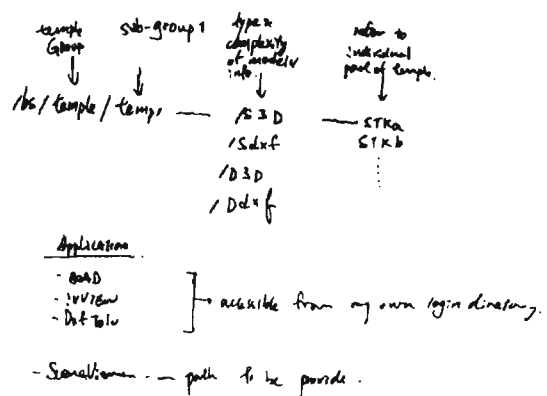 temple Group
sub-group 1
type & complexity of model info.
refer to individual part of temple.
/bs/temple/temp1 — /S3D — STKa
/Sdxf STKb
/D3D
/Ddxf
Application
- inView
accessible from my own login directory.
- SceneViewer — path to be provide.